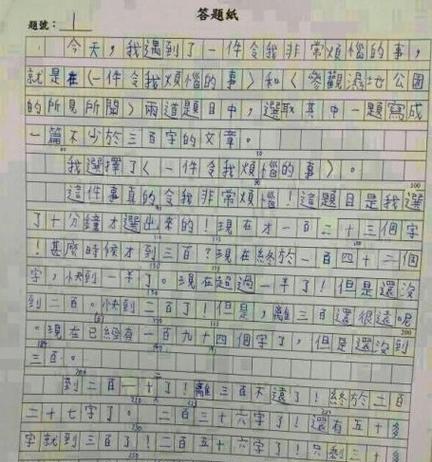 答題紙
題號：1
今天，我遇到了一件令我非常煩惱的事，
就是在〈一件令我煩惱的事〉和〈參觀濕地公園
的所見所聞〉兩道題目中，選取其中一題寫成
一篇不少於三百字的文章。
我選擇了〈一件令我煩惱的事〉。
這件事真的令我非常煩惱！這題目是我選
了十分鐘才選出來的！現在才一百二十三個字
！甚麼時候才到三百？現在終於一百四十二個
字，快到一半了。現在超過一半了！但是還沒
到二百。快到二百了！但是，離三百還很遠呢
。現在已經有一百九十四個字了，但是還沒到
三百。
到二百一十了！離三百不遠了！終於二百
二十七字了。二百三十六字了！還有五十多
字就到三百了！二百五十六字了！只剩三十多